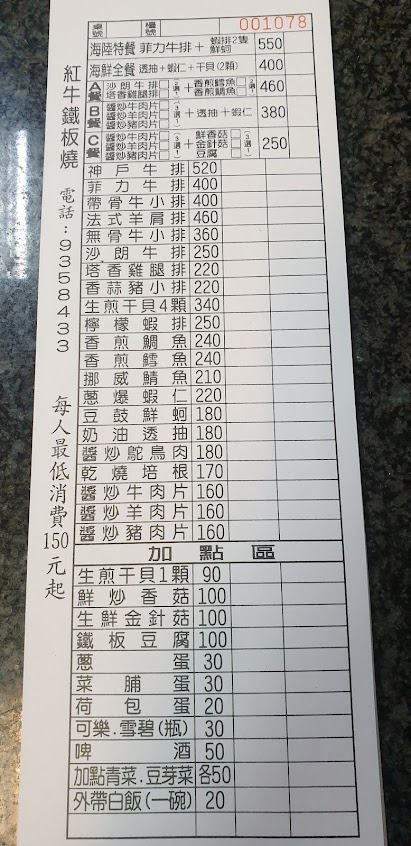 桌號 檯號 001078
海陸特餐 菲力牛排+ 蝦排2隻 鮮蚵 550
海鮮全餐 透抽+蝦仁+干貝(2顆) 400
A餐 沙朗牛排 塔香雞腿排 (2選1)+ 香煎鯛魚 香煎鱈魚 (2選1) 460
B餐 醬炒牛肉片 醬炒羊肉片 醬炒豬肉片 (3選1) +透抽+蝦仁 380
C餐 醬炒牛肉片 醬炒羊肉片 醬炒豬肉片 (3選1)+ 鮮香菇 金針菇 豆腐 (3選1) 250
神戶牛排 520
菲力牛排 400
帶骨牛小排 400
法式羊肩排 460
無骨牛小排 360
沙朗牛排 250
塔香雞腿排 220
香蒜豬小排 220
生煎干貝4顆 340
檸檬蝦排 250
香煎鯛魚 240
香煎鱈魚 240
挪威鯖魚 210
蔥爆蝦仁 220
豆鼓鮮蚵 180
奶油透抽 180
醬炒鴕鳥肉 180
乾燒培根 170
醬炒牛肉片 160
醬炒羊肉片 160
醬炒豬肉片 160
加點區
生煎干貝1顆 90
鮮炒香菇 100
生鮮金針菇 100
鐵板豆腐 100
蔥蛋 30
菜脯蛋 30
荷包蛋 20
可樂.雪碧(瓶) 30
啤酒 50
加點青菜.豆芽菜 各50
外帶白飯(一碗) 20
紅牛鐵板燒 電話:9358433 每人最低消費150元起